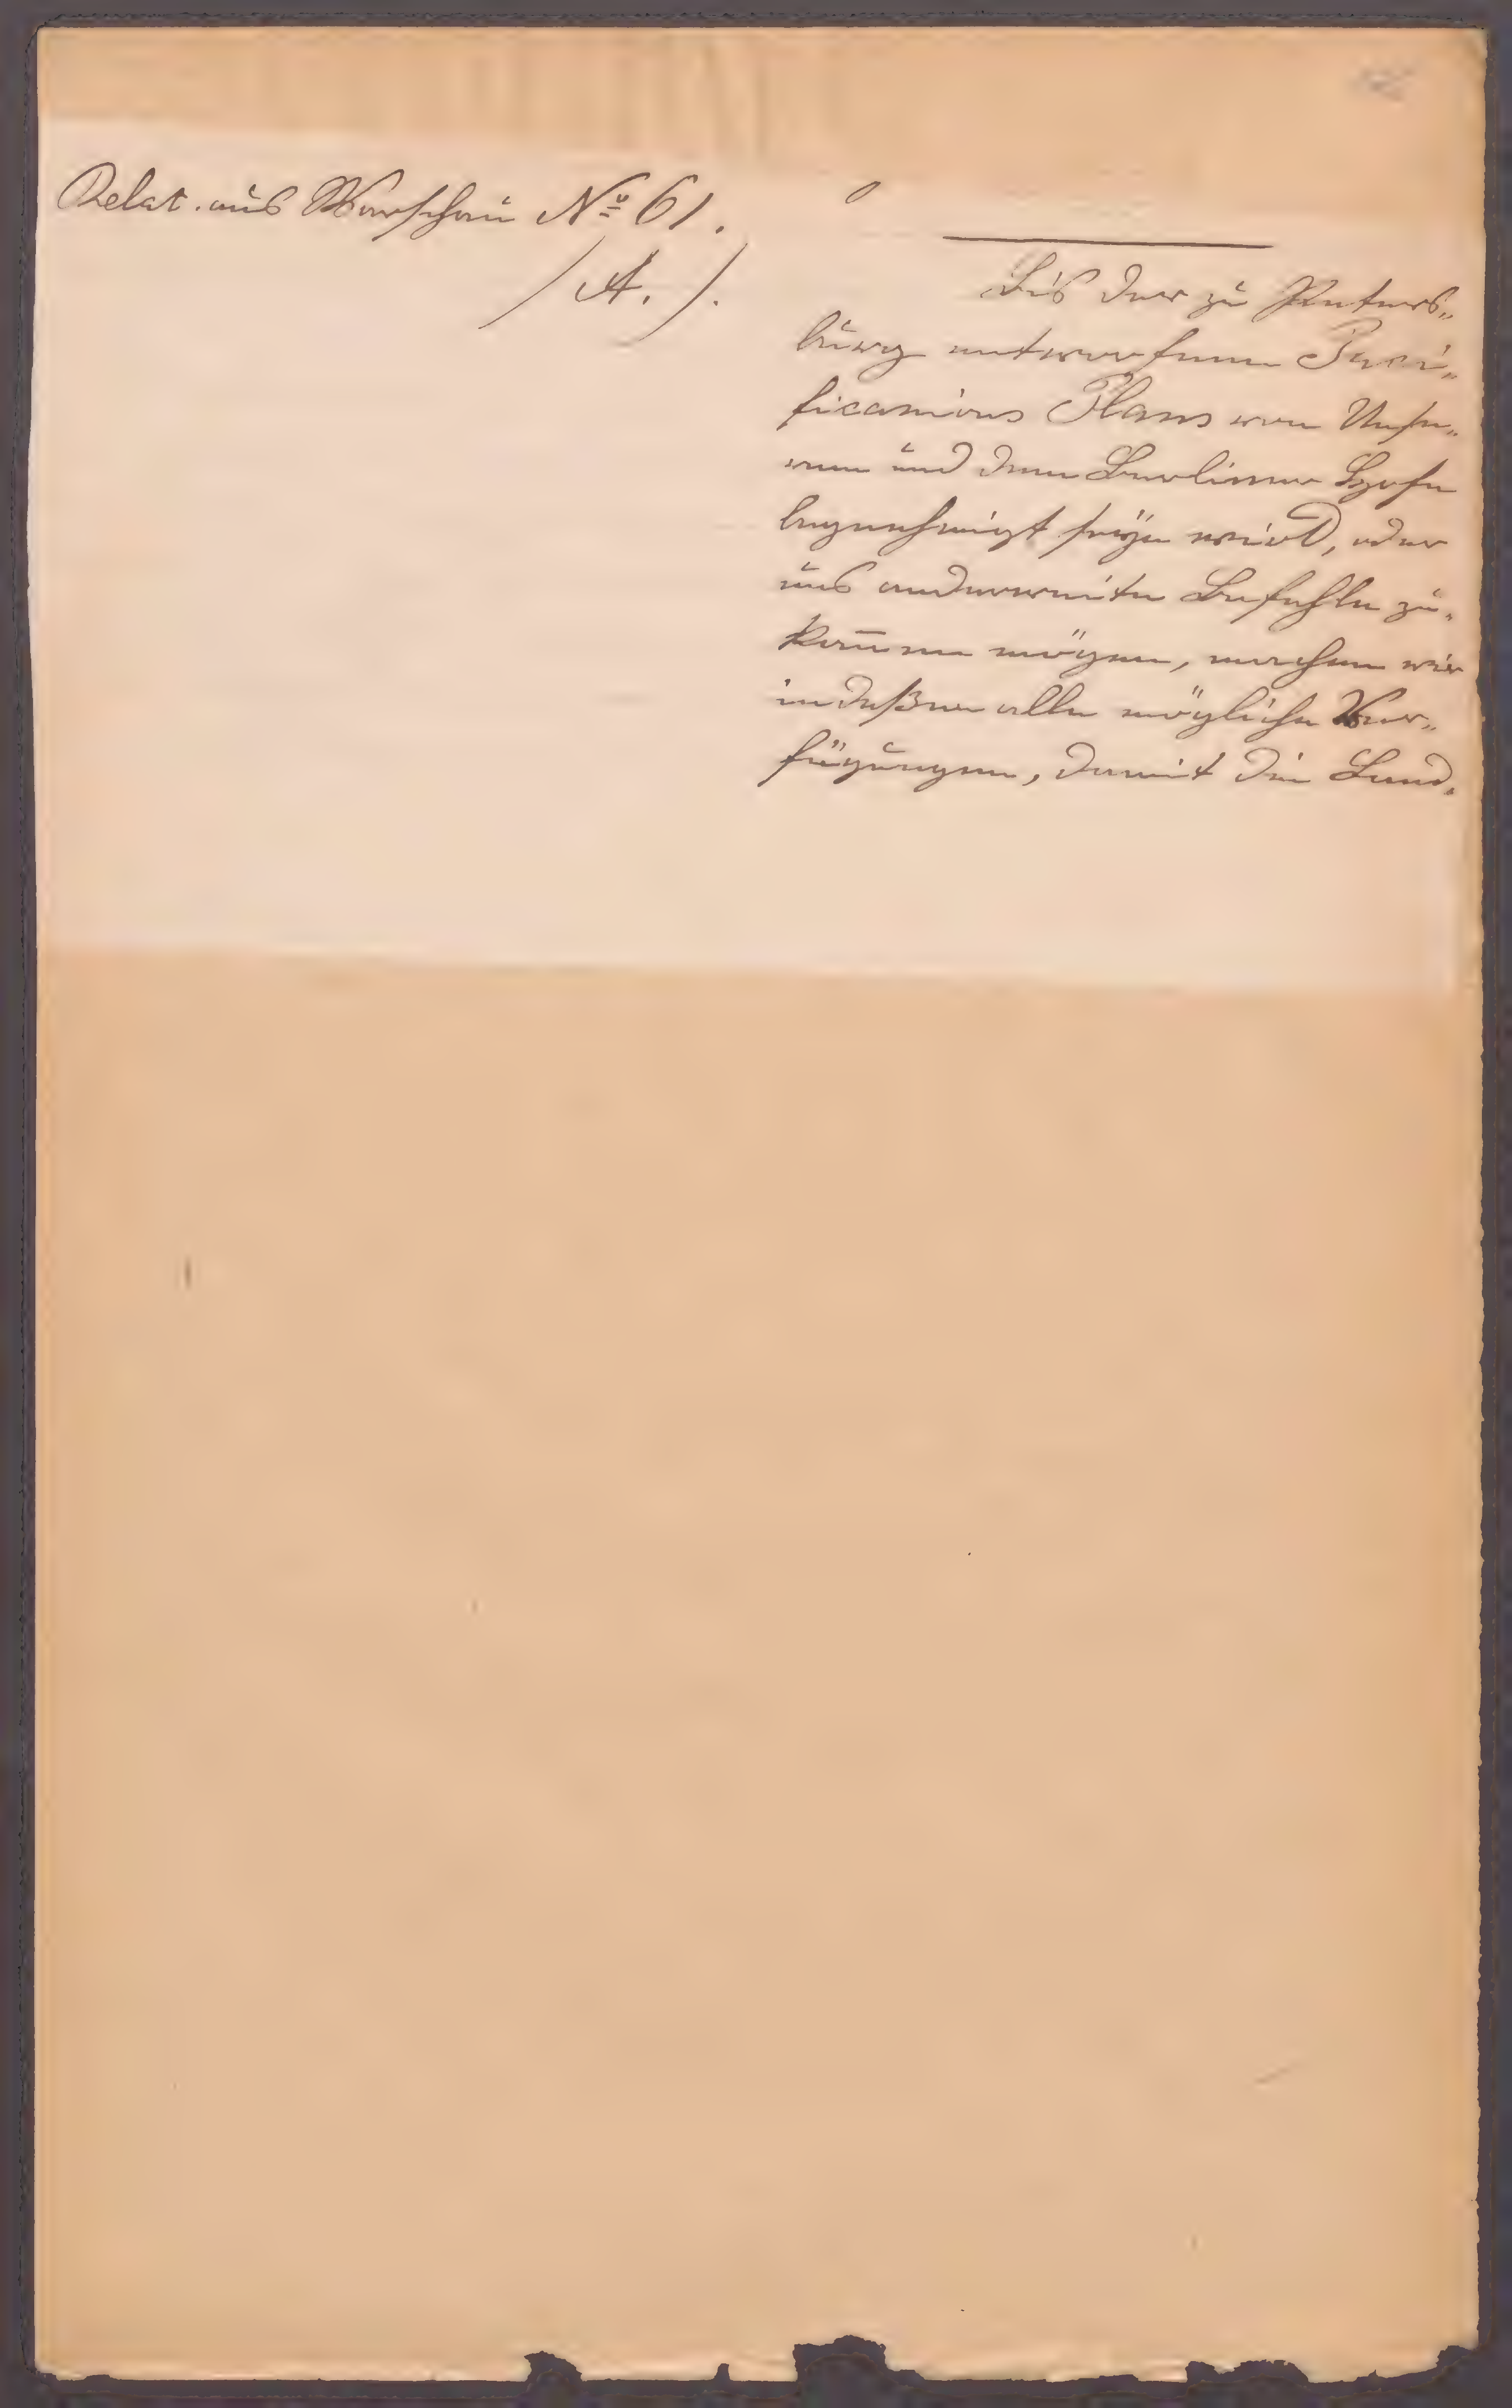 Relat. aus Warschau Nº 61.
/ A. /.
Bis der zu Peters„
burg entworfene Paci„
ficanions Plans von Unse„
rem und dem Berliner Hofe
begnehmigt seÿn wird, oder
uns anderweite Befehle zu„
kom̄en mögen, machen wir
indeßen alle mögliche Ver„
fügungen, damit die Land„